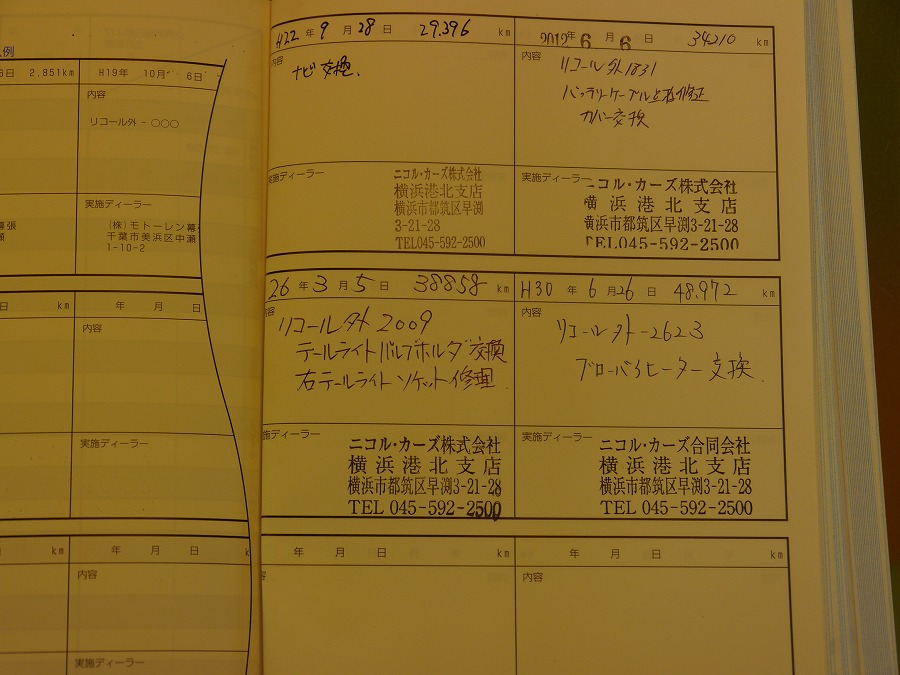 例
6日 2,851km
H19年 10月 6日
内容
リコール外 - ○○○
実施ディーラー
(株)モトーレン幕
千葉市美浜区中瀬
1-10-2
幕張
瀬
H22年 9月 28日 29,396 km
内容
ナビ交換.
実施ディーラー
ニコル・カーズ株式会社
横浜港北支店
横浜市都筑区早渕
3-21-28
TEL045-592-2500
2012 6月 6日 34210 km
内容
リコール外1831
バッテリーケーブル点検修正
カバー交換
実施ディーラー
ニコル・カーズ株式会社
横浜港北支店
横浜市都筑区早渕3-21-28
TEL045-592-2500
日 km
年 月 日
内容
実施ディーラー
26年 3月 5日 38858 km
内容
リコール外2009
テールライトバルブホルダ交換
右テールライトソケット修理
施ディーラー
ニコル・カーズ株式会社
横浜港北支店
横浜市都筑区早渕3-21-28
TEL 045-592-2500
H30年 6月26日 48,972 km
内容
リコール外-2623
ブローバイヒーター交換
実施ディーラー
ニコル・カーズ合同会社
横浜港北支店
横浜市都筑区早渕3-21-28
TEL 045-592-2500
km
年 月 日 k
内容
実施ディーラー
年 月 日 km
容
年 月 日 km
内容